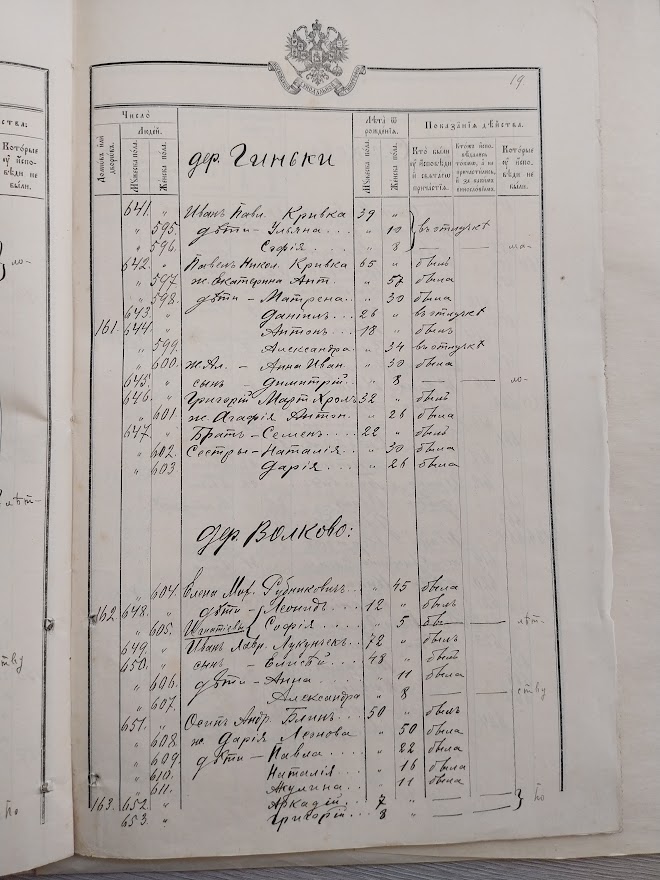 19
Число
Людей.
Лѣта ѿ рожденія.
Показанія дѣйства.
Мꙋжеска пола.
Женска пола.
Мꙋжеска пола.
Женска пола.
Кто были оу исповѣди и свѧтаго причастія.
Которые оу исповѣди не были.
дер. Гиньки
641. " Иванъ Павл. Кривка 39 "
" 595. дѣти - Ульяна... " 10 въ отлучкѣ
" 596. Софія... " 8 — —
642. " Павелъ Никол. Кривка 65 " былъ
" 597 ж. Екатерина Ант. " 57 была
" 598. дѣти - Матрена.. " 30 была
643. " Даніилъ... 26 " въ отлучкѣ
161. 644. " Антонъ... 18 " былъ
" 599. Александра.. " 34 въ отлучкѣ
" 600. ж. Ал. - Анна Иван. " 30 была
645. " сынъ - Димитрій.. " 8 — —
646. " Григорій Март. Хромъ 32 " былъ
" 601 ж. Агафія Антон. " 26 была
647. " Братъ - Семенъ... 22 " былъ
" 602. Сестры - Наталія... " 30 была
" 603 Дарія.... " 26 была
дер. Волково:
" 604. Елена Мих. " 45 была
162. 648. " дѣти - Леонидъ... 12 " былъ
" 605. Софія... " 5 — лѣт-
649. " Иванъ Лавр. 72 " былъ
650. " сынъ - Елисей... 48 " былъ
" 606. дѣти - Анна... " 11 была
" 607. Александра " 8 — — ству
651. " Осипъ Андр. Блинъ.. 50 " былъ
" 608 ж. Дарія Леонова " 50 была
" 609. дѣти - Павла... " 22 была
" 610. Наталія... " 16 была
" 611. Акулина... " 11 была
163. 652. " Аркадій... 7 " — —
653. " Григорій... 8 " — — по